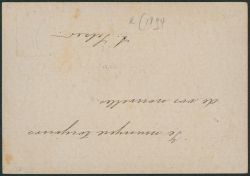 1894
Je manque toujours
de vos nouvelles.